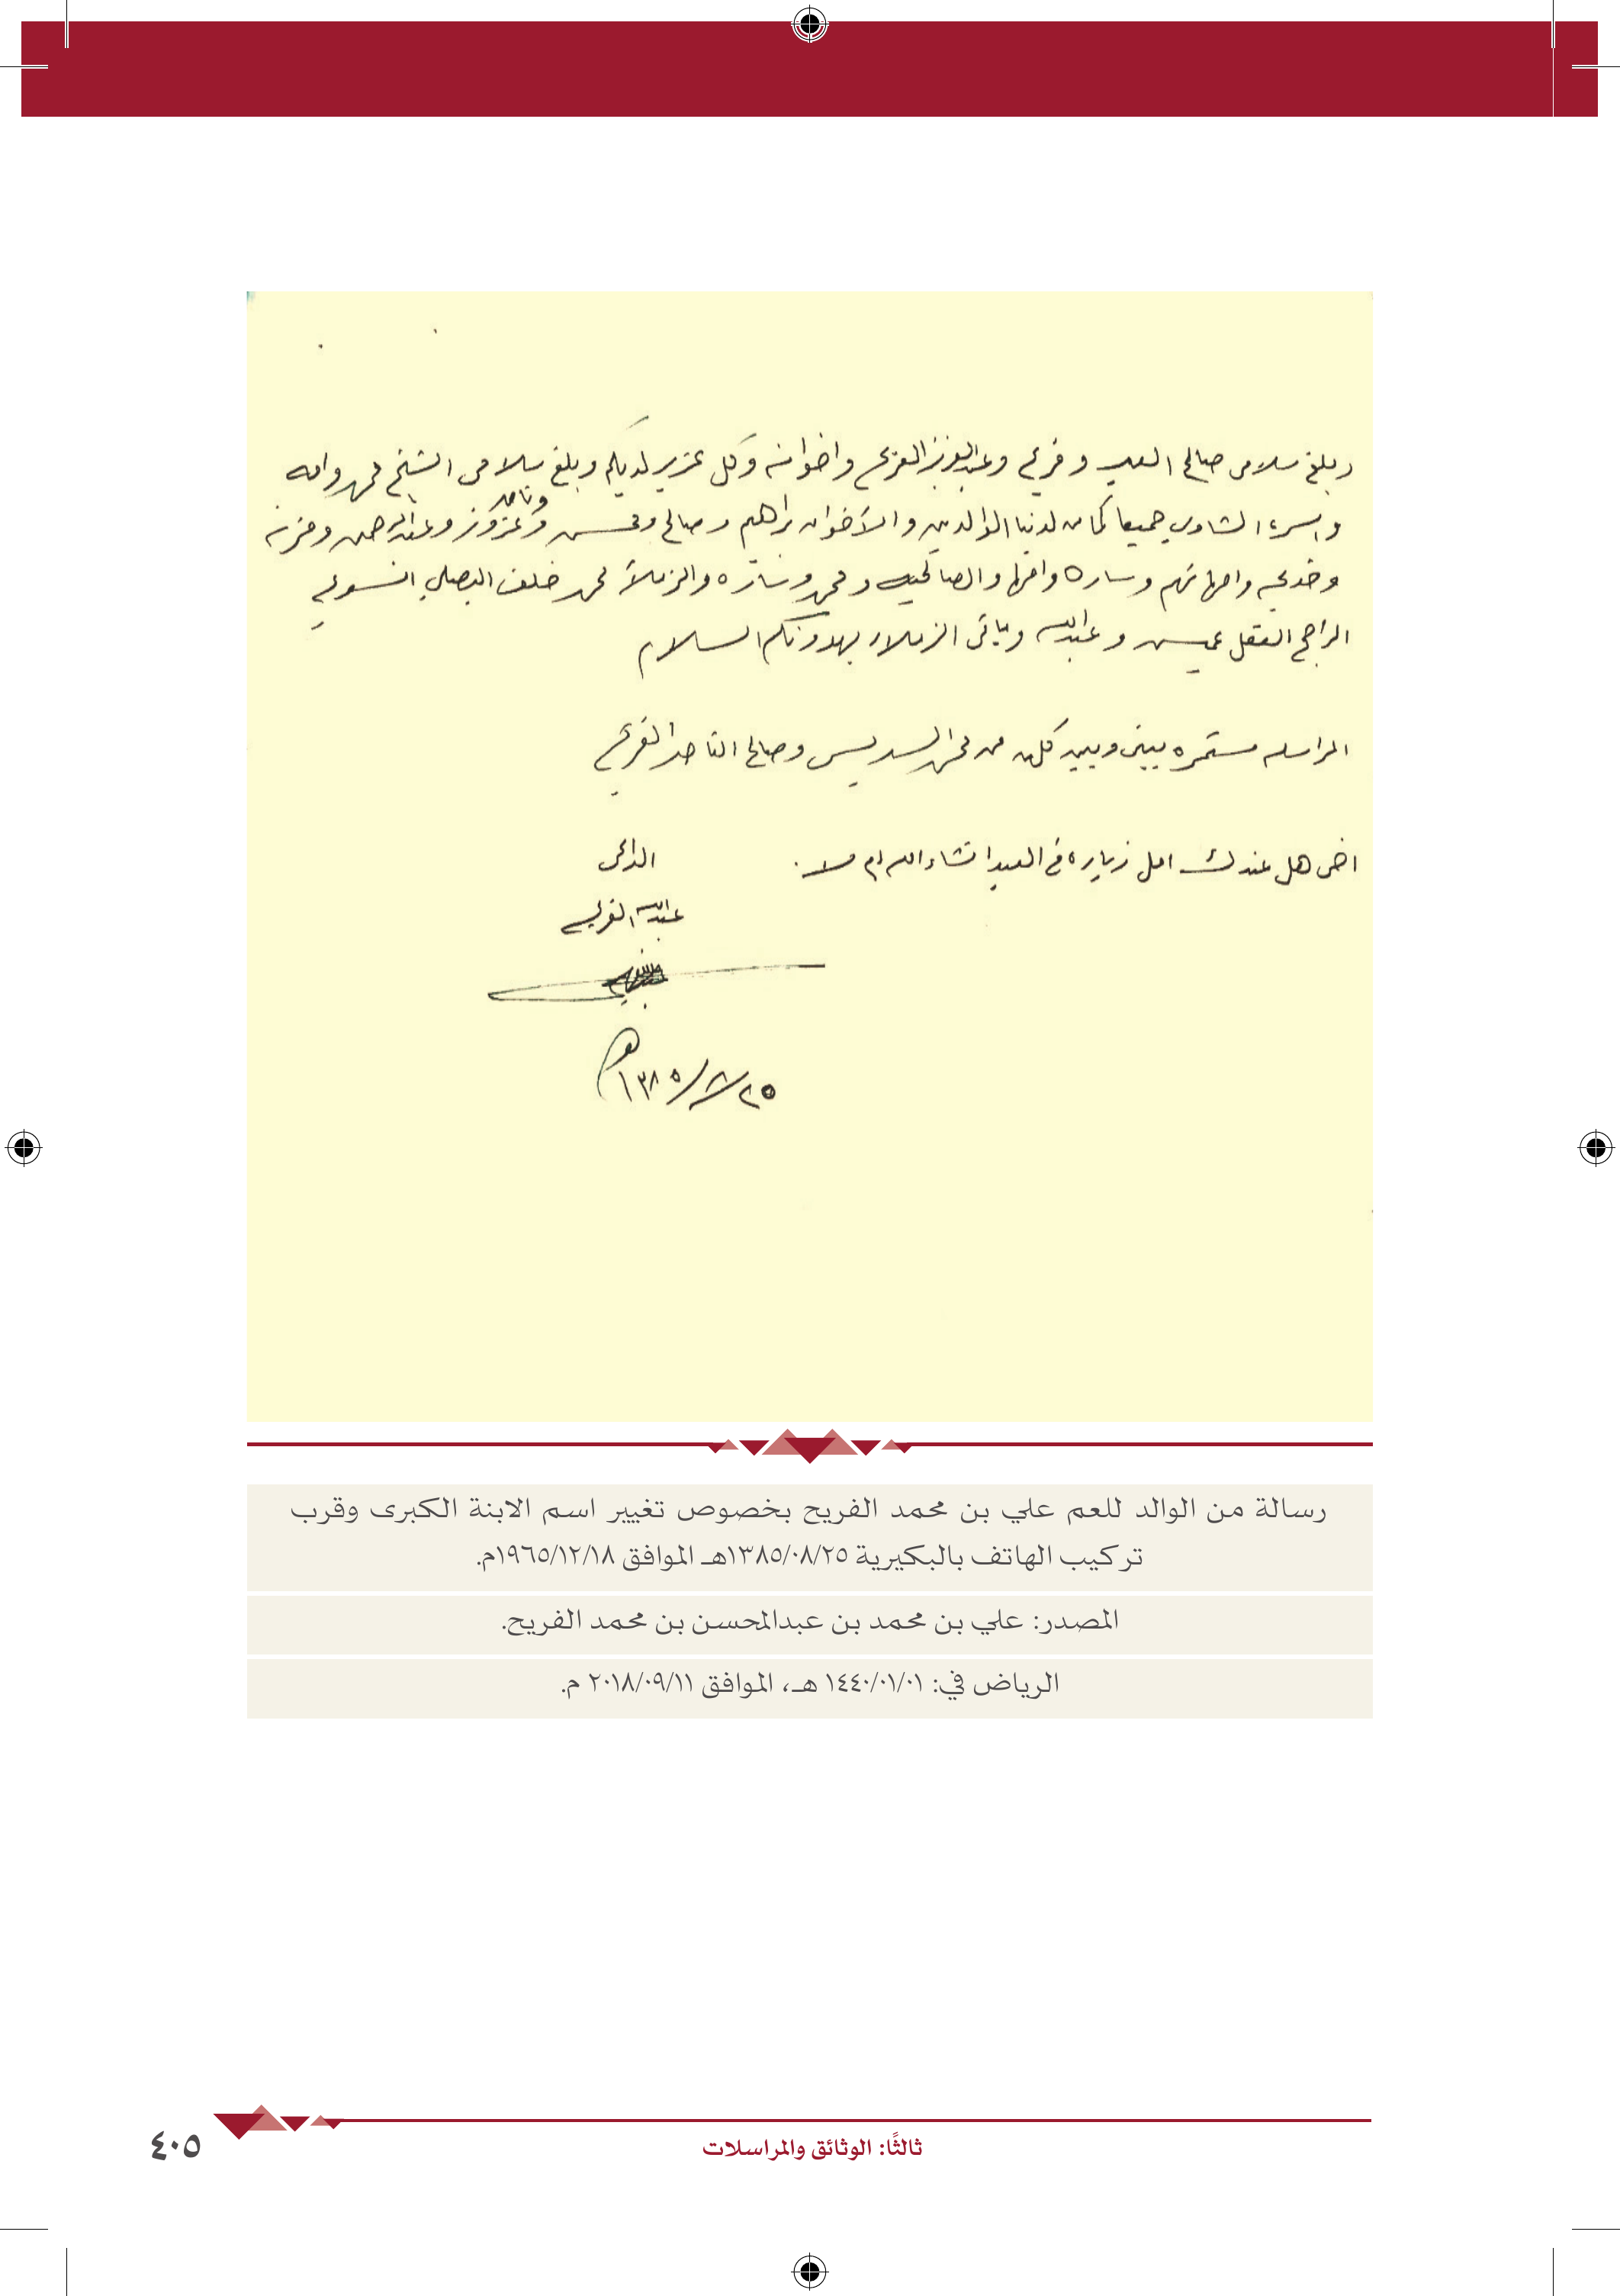 وبلغ سلامي صالح العيد وفريح وعبدالعزيز الفريح واخوانه وكل عزيز لديكم وبلغ سلامي الشيخ محمد وامه
وناصر
واسرة الشاوي جميعا كما من لدينا الوالدين والأخوان براهيم وصالح ومحسن وعزوز وعبدالرحمن ومزنه
وخديجه وامهاتهم وساره وامها والصالحيه ومحمد وساره والزملاء محمد خلف البصلي
الراجح العقل عيسى وعبدالله وباقي الزملاء يهدونكم السلام
المراسله مستمره بيني وبين كل من محمد السديس وصالح الناصر الفريح
اخي هل عندك امل زياره في العيد انشاء الله ام لا.
الداعي
عبدالله الفريح
٢٥/٨/١٣٨٥هـ
رسالة من الوالد للعم علي بن محمد الفريح بخصوص تغيير اسم الابنة الكبرى وقرب
تركيب الهاتف بالبكيرية ١٣٨٥/٠٨/٢٥هـ الموافق ١٩٦٥/١٢/١٨م.
المصدر: علي بن محمد بن عبدالمحسن بن محمد الفريح.
الرياض في: ١٤٤٠/٠١/٠١ هـ، الموافق ٢٠١٨/٠٩/١١ م.
ثالثًا: الوثائق والمراسلات
٤٠٥